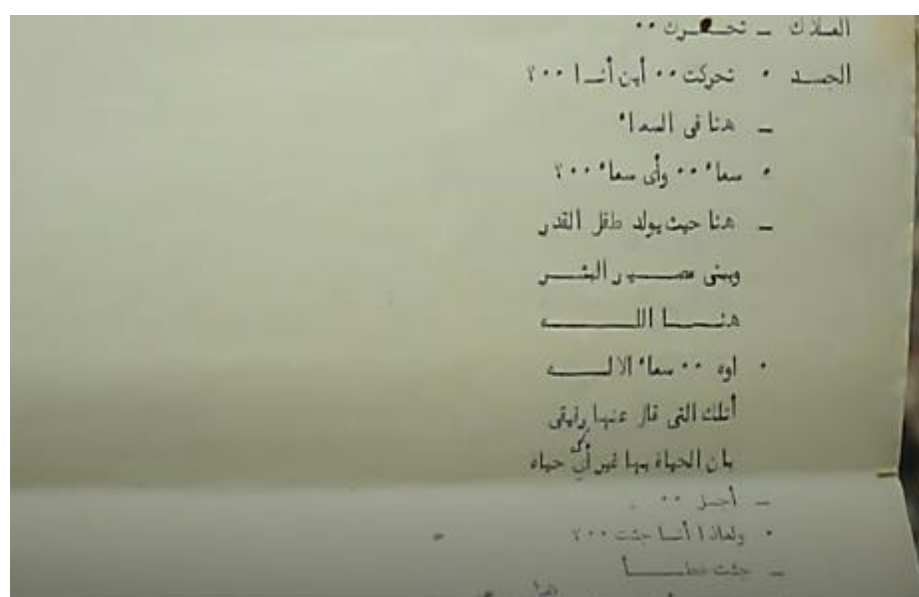 الملاك ـ تحـــركت ٠٠
الجســد ٠ تحركت ٠٠ أين أنــا ٠٠؟
ـ هنا فى السماء
٠ سماء ٠٠ وأى سماء ٠٠؟
ـ هنا حيث يولد طفل القدر
ويبنى مصـــير البشـــر
هنـــا اللـــــه
٠ اوه ٠٠ سماء الالـــــه
أتلك التى قال عنها رفيقى
بان الحياة بها غير أى حياه
ـ أجــل ٠٠
٠ ولماذا أنــا جئت ٠٠؟
ـ جئت خطـــأ